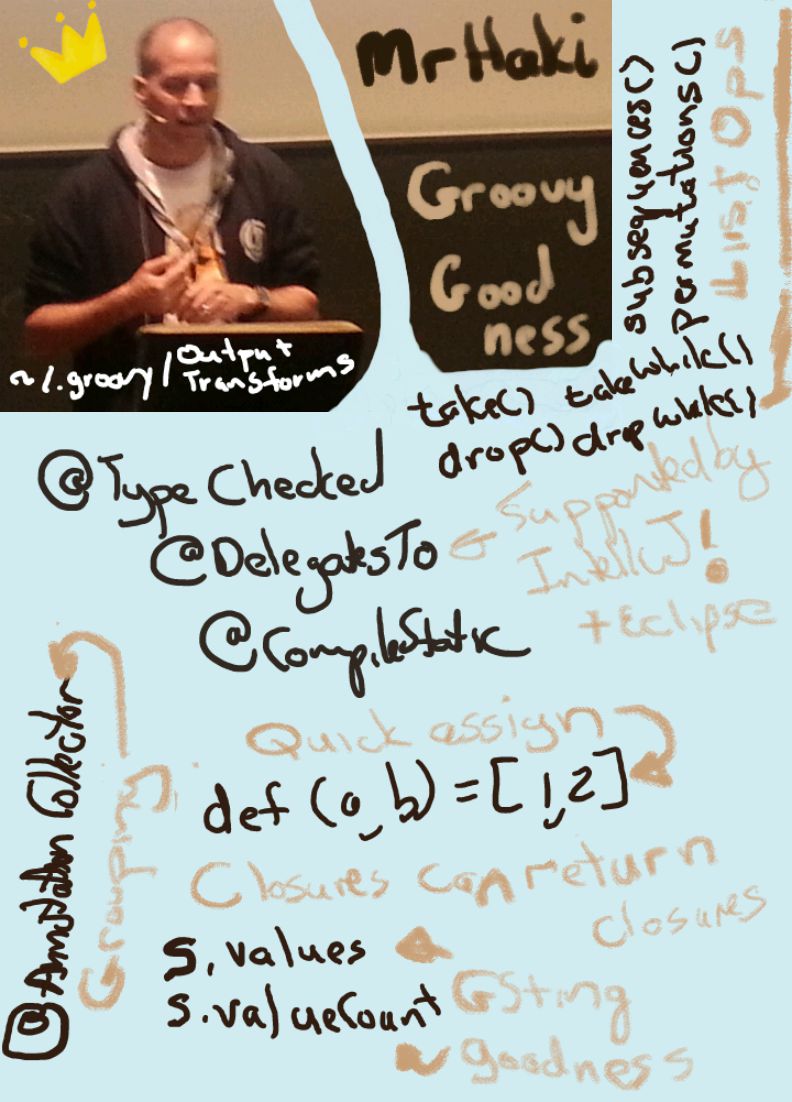 MrHaki
Groovy
Good
ness
~/.groovy/Output
Transforms
subsequences()
permutations()
List Ops
take() takeWhile()
drop() dropWhile()
@TypeChecked
@DelegatesTo
Supported by
IntelliJ!
+Eclipse
@CompileStatic
@Annotation Collector
Grouping
Quick assign
def (a, b) = [1, 2]
Closures can return
closures
s.values
s.valueCount
GSting
goodness